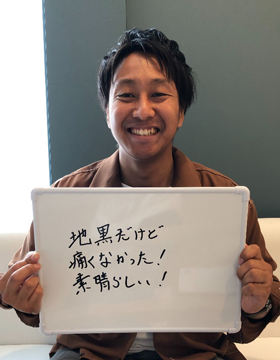 地黒だけど
痛くなかった!
素晴らしい!